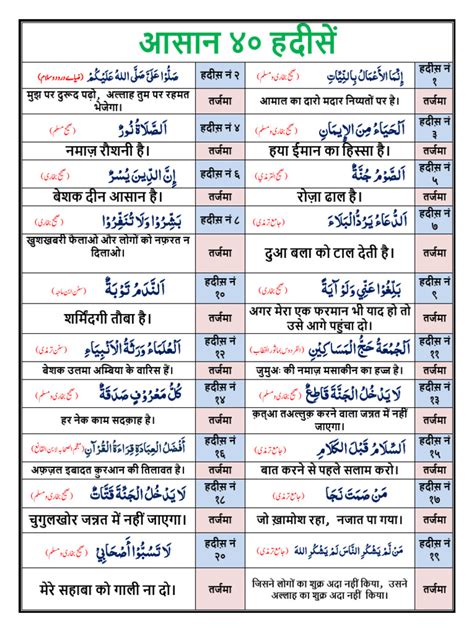 आसान ४० हदीसें
हदीस़ नं १
اِنَّمَا الْاَعْمَالُ بِالنِّيَّاتِ (صحیح بخاری و مسلم)
हदीस़ नं २
صَلُّوْا عَلَیَّ صَلَّی اللہُ عَلَیْکُمْ
तर्जमा
आमाल का दारो मदार निय्यतों पर है।
तर्जमा
मुझ पर दुरूद पढ़ो, अल्लाह तुम पर रहमत
भेजेगा।
हदीस़ नं ३
اَلْحَيَاءُ مِنَ الْاِيْمَانِ (صحیح بخاری و مسلم)
हदीस़ नं ४
اَلصَّلَاةُ نُوْرٌ (صحیح مسلم)
तर्जमा
हया ईमान का हिस्सा है।
तर्जमा
नमाज़ रौशनी है।
हदीस़ नं ५
اَلصَّوْمُ جُنَّةٌ
हदीस़ नं ६
اِنَّ الدِّيْنَ يُسْرٌ (صحیح بخاری)
तर्जमा
रोज़ा ढाल है।
तर्जमा
बेशक दीन आसान है।
हदीस़ नं ७
اَلدُّعَاءُ يَرُدُّ الْبَلَاءَ (جامع ترمذی)
हदीस़ नं ८
بَشِّرُوْا وَلَا تُنَفِّرُوْا (صحیح بخاری)
तर्जमा
दुआ बला को टाल देती है।
तर्जमा
खुशखबरी फैलाओ और लोगों को नफ़रत न
दिलाओ।
हदीस़ नं ९
بَلِّغُوْا عَنِّيْ وَلَوْ اٰيَةً (صحیح بخاری)
हदीस़ नं १०
اَلنَّدَمُ تَوْبَةٌ (سنن ابن ماجہ)
तर्जमा
अगर मेरा एक फरमान भी याद हो तो
उसे आगे पहुंचा दो।
तर्जमा
शर्मिंदगी तौबा है।
हदीस़ नं ११
اَلْجُمُعَةُ حَجُّ الْمَسَاكِيْنِ
हदीस़ नं १२
اَلْعُلَمَاءُ وَرَثَةُ الْاَنْبِيَاءِ (سنن ترمذی)
तर्जमा
जुमुअः की नमाज़ मसाकीन का हज्ज है।
तर्जमा
बेशक उलमा अम्बिया के वारिस हैं।
हदीस़ नं १३
لَا يَدْخُلُ الْجَنَّةَ قَاطِعٌ (صحیح بخاری و مسلم)
हदीस़ नं १४
كُلُّ مَعْرُوْفٍ صَدَقَةٌ (صحیح بخاری و مسلم)
तर्जमा
क़त्अा तअल्लुक़ करने वाला जन्नत में नहीं
जाएगा।
तर्जमा
हर नेक काम सदक़ाह है।
हदीस़ नं १५
اَلسَّلَامُ قَبْلَ الْكَلَامِ (جامع ترمذی)
हदीस़ नं १६
اَفْضَلُ الْعِبَادَةِ قِرَاءَةُ الْقُرْآنِ
तर्जमा
बात करने से पहले सलाम करो।
तर्जमा
अफ़ज़ल इबादत क़ुरआन की तिलावत है।
हदीस़ नं १७
مَنْ صَمَتَ نَجَا (جامع ترمذی)
हदीस़ नं १८
لَا يَدْخُلُ الْجَنَّةَ قَتَّاتٌ (صحیح بخاری و مسلم)
तर्जमा
जो ख़ामोश रहा, नजात पा गया।
तर्जमा
चुगुलखोर जन्नत में नहीं जाएगा।
हदीस़ नं १९
مَنْ لَمْ يَشْكُرِ النَّاسَ لَمْ يَشْكُرِ اللہَ (جامع ترمذی)
हदीस़ नं २०
لَا تَسُبُّوْا اَصْحَابِيْ (صحیح بخاری و مسلم)
तर्जमा
जिसने लोगों का शुक्र अदा नहीं किया, उसने
अल्लाह का शुक्र अदा नहीं किया।
तर्जमा
मेरे सहाबा को गाली ना दो।